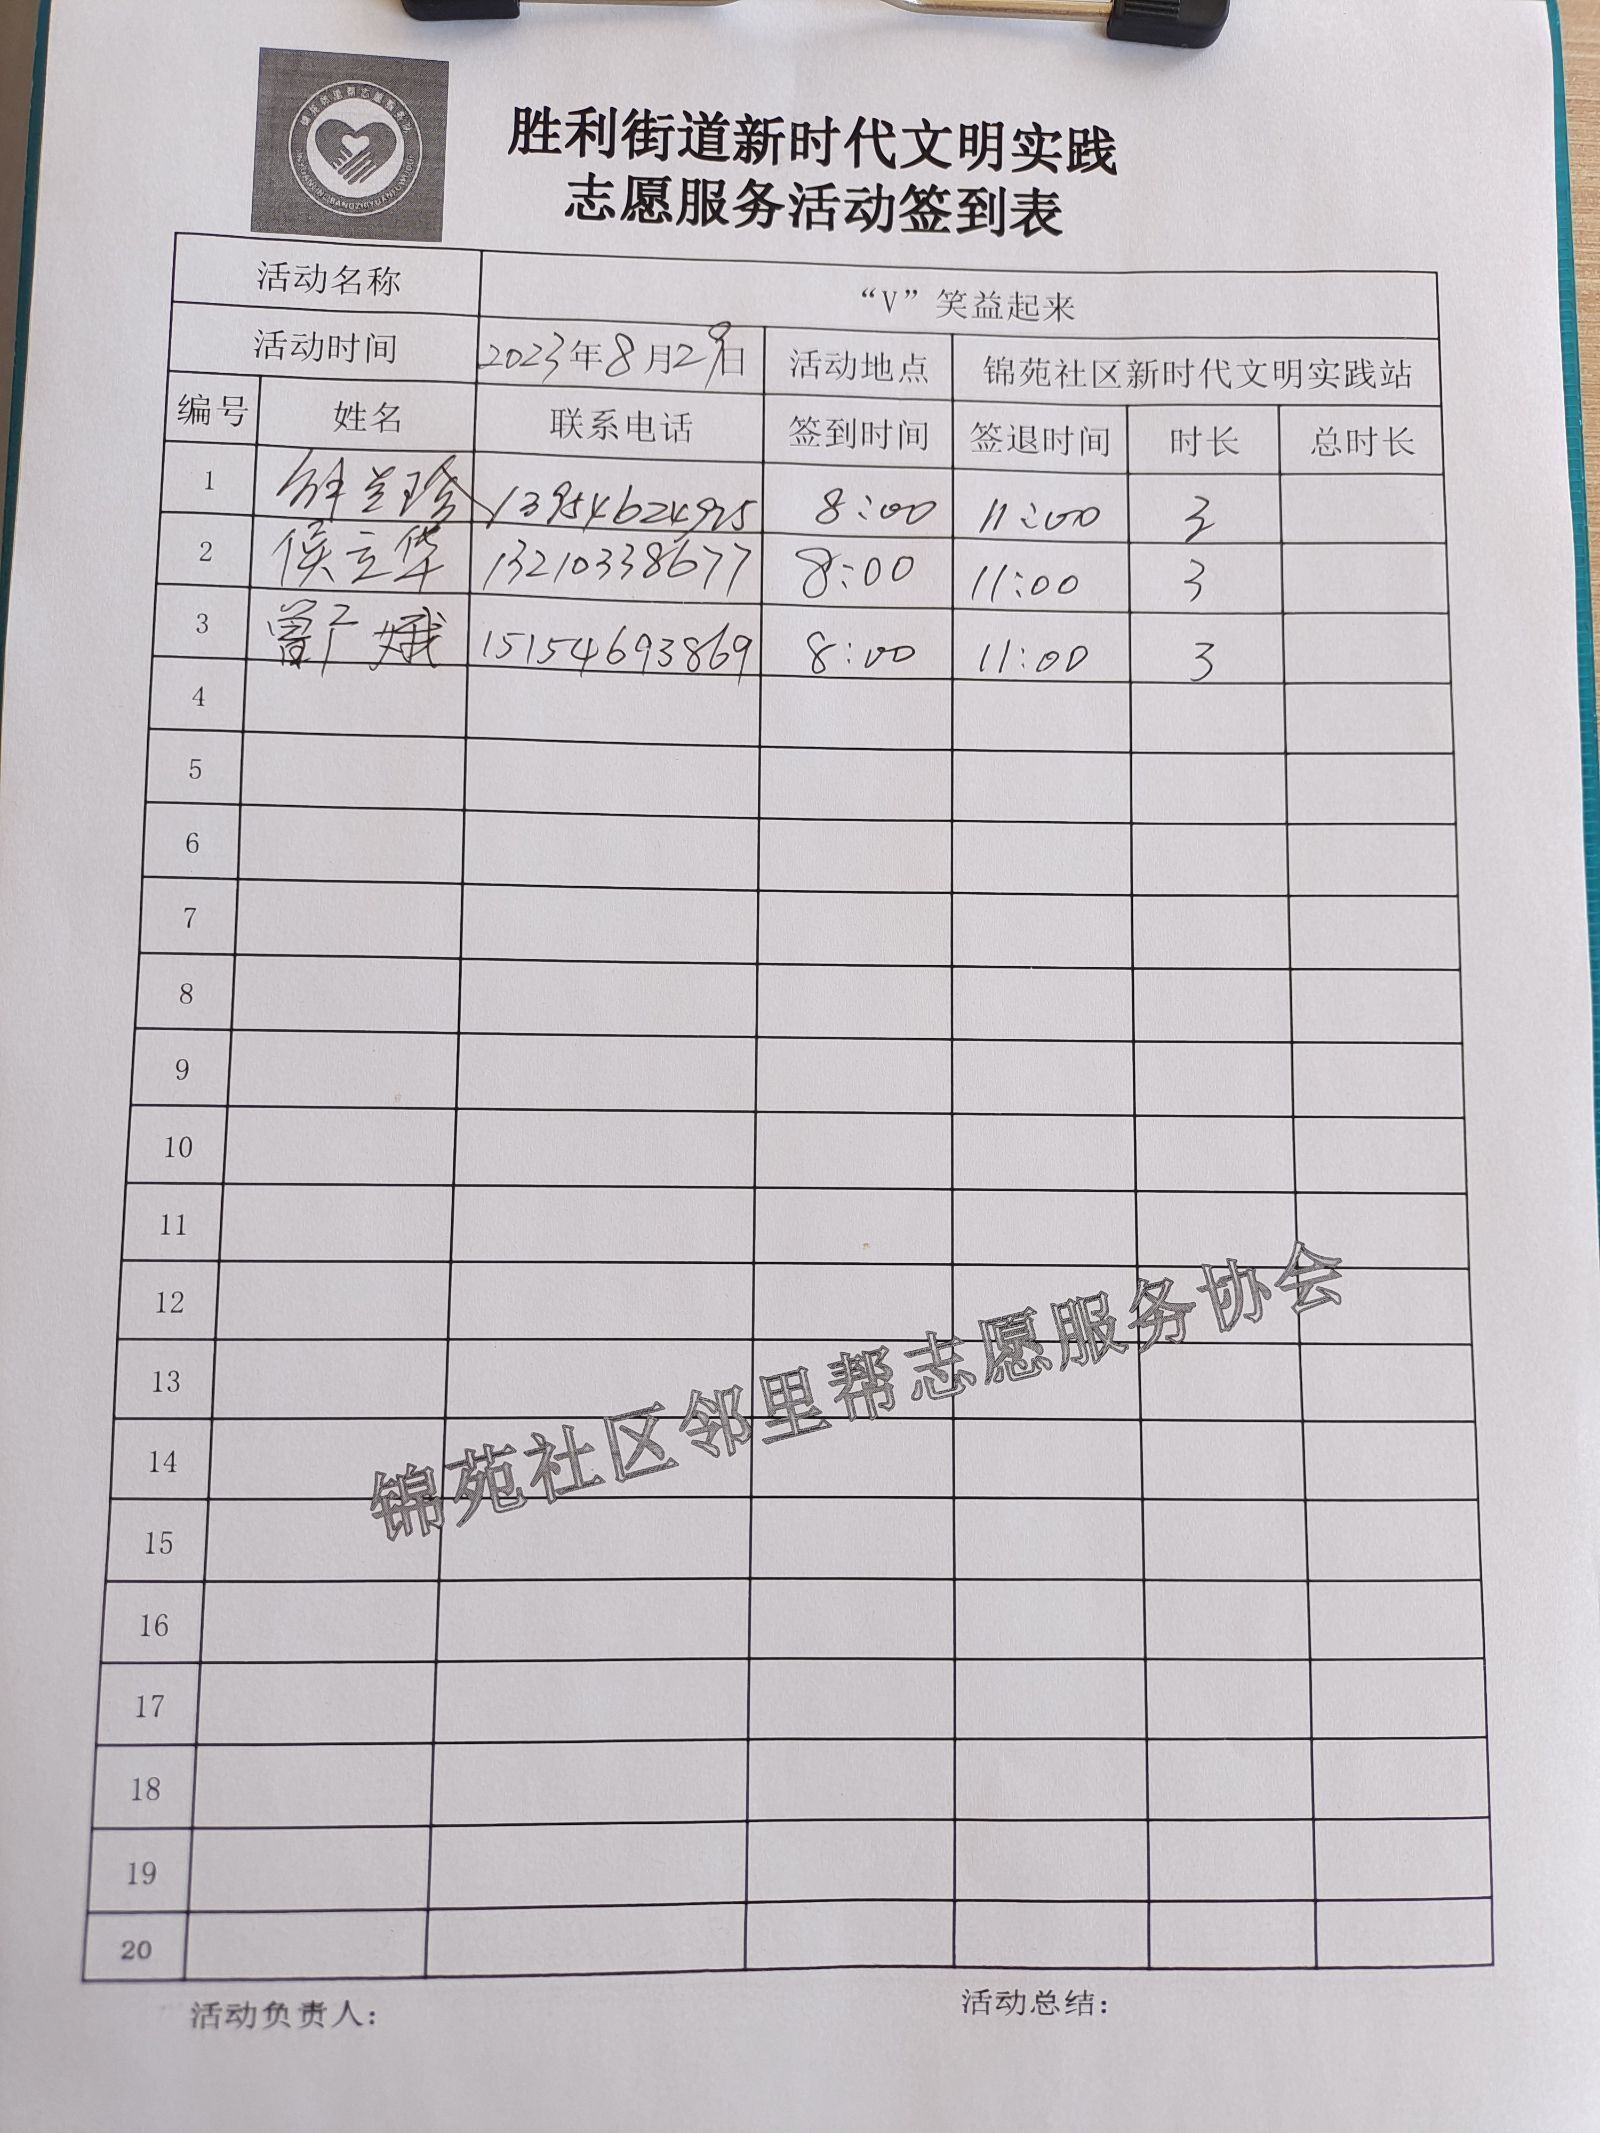 胜利街道新时代文明实践
志愿服务活动签到表
活动名称 “V”笑益起来
活动时间 2023年8月29日 活动地点 锦苑社区新时代文明实践站
编号 姓名 联系电话 签到时间 签退时间 时长 总时长
1 兰珍 13954624925 8:00 11:00 3
2 侯立华 13210338677 8:00 11:00 3
3 曾广娥 15154693869 8:00 11:00 3
4
5
6
7
8
9
10
11
12
13
14
15
16
17
18
19
20
锦苑社区邻里帮志愿服务协会
活动负责人： 活动总结：